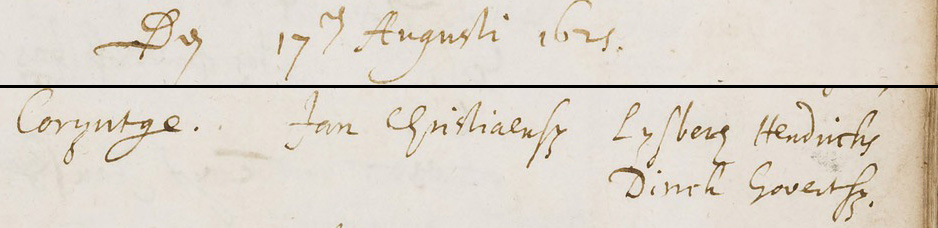 Den 17en Augusti 1625.
Coryntge. Jan Christiaensz Lysbeth Hendricks
Dirck Govertsz.